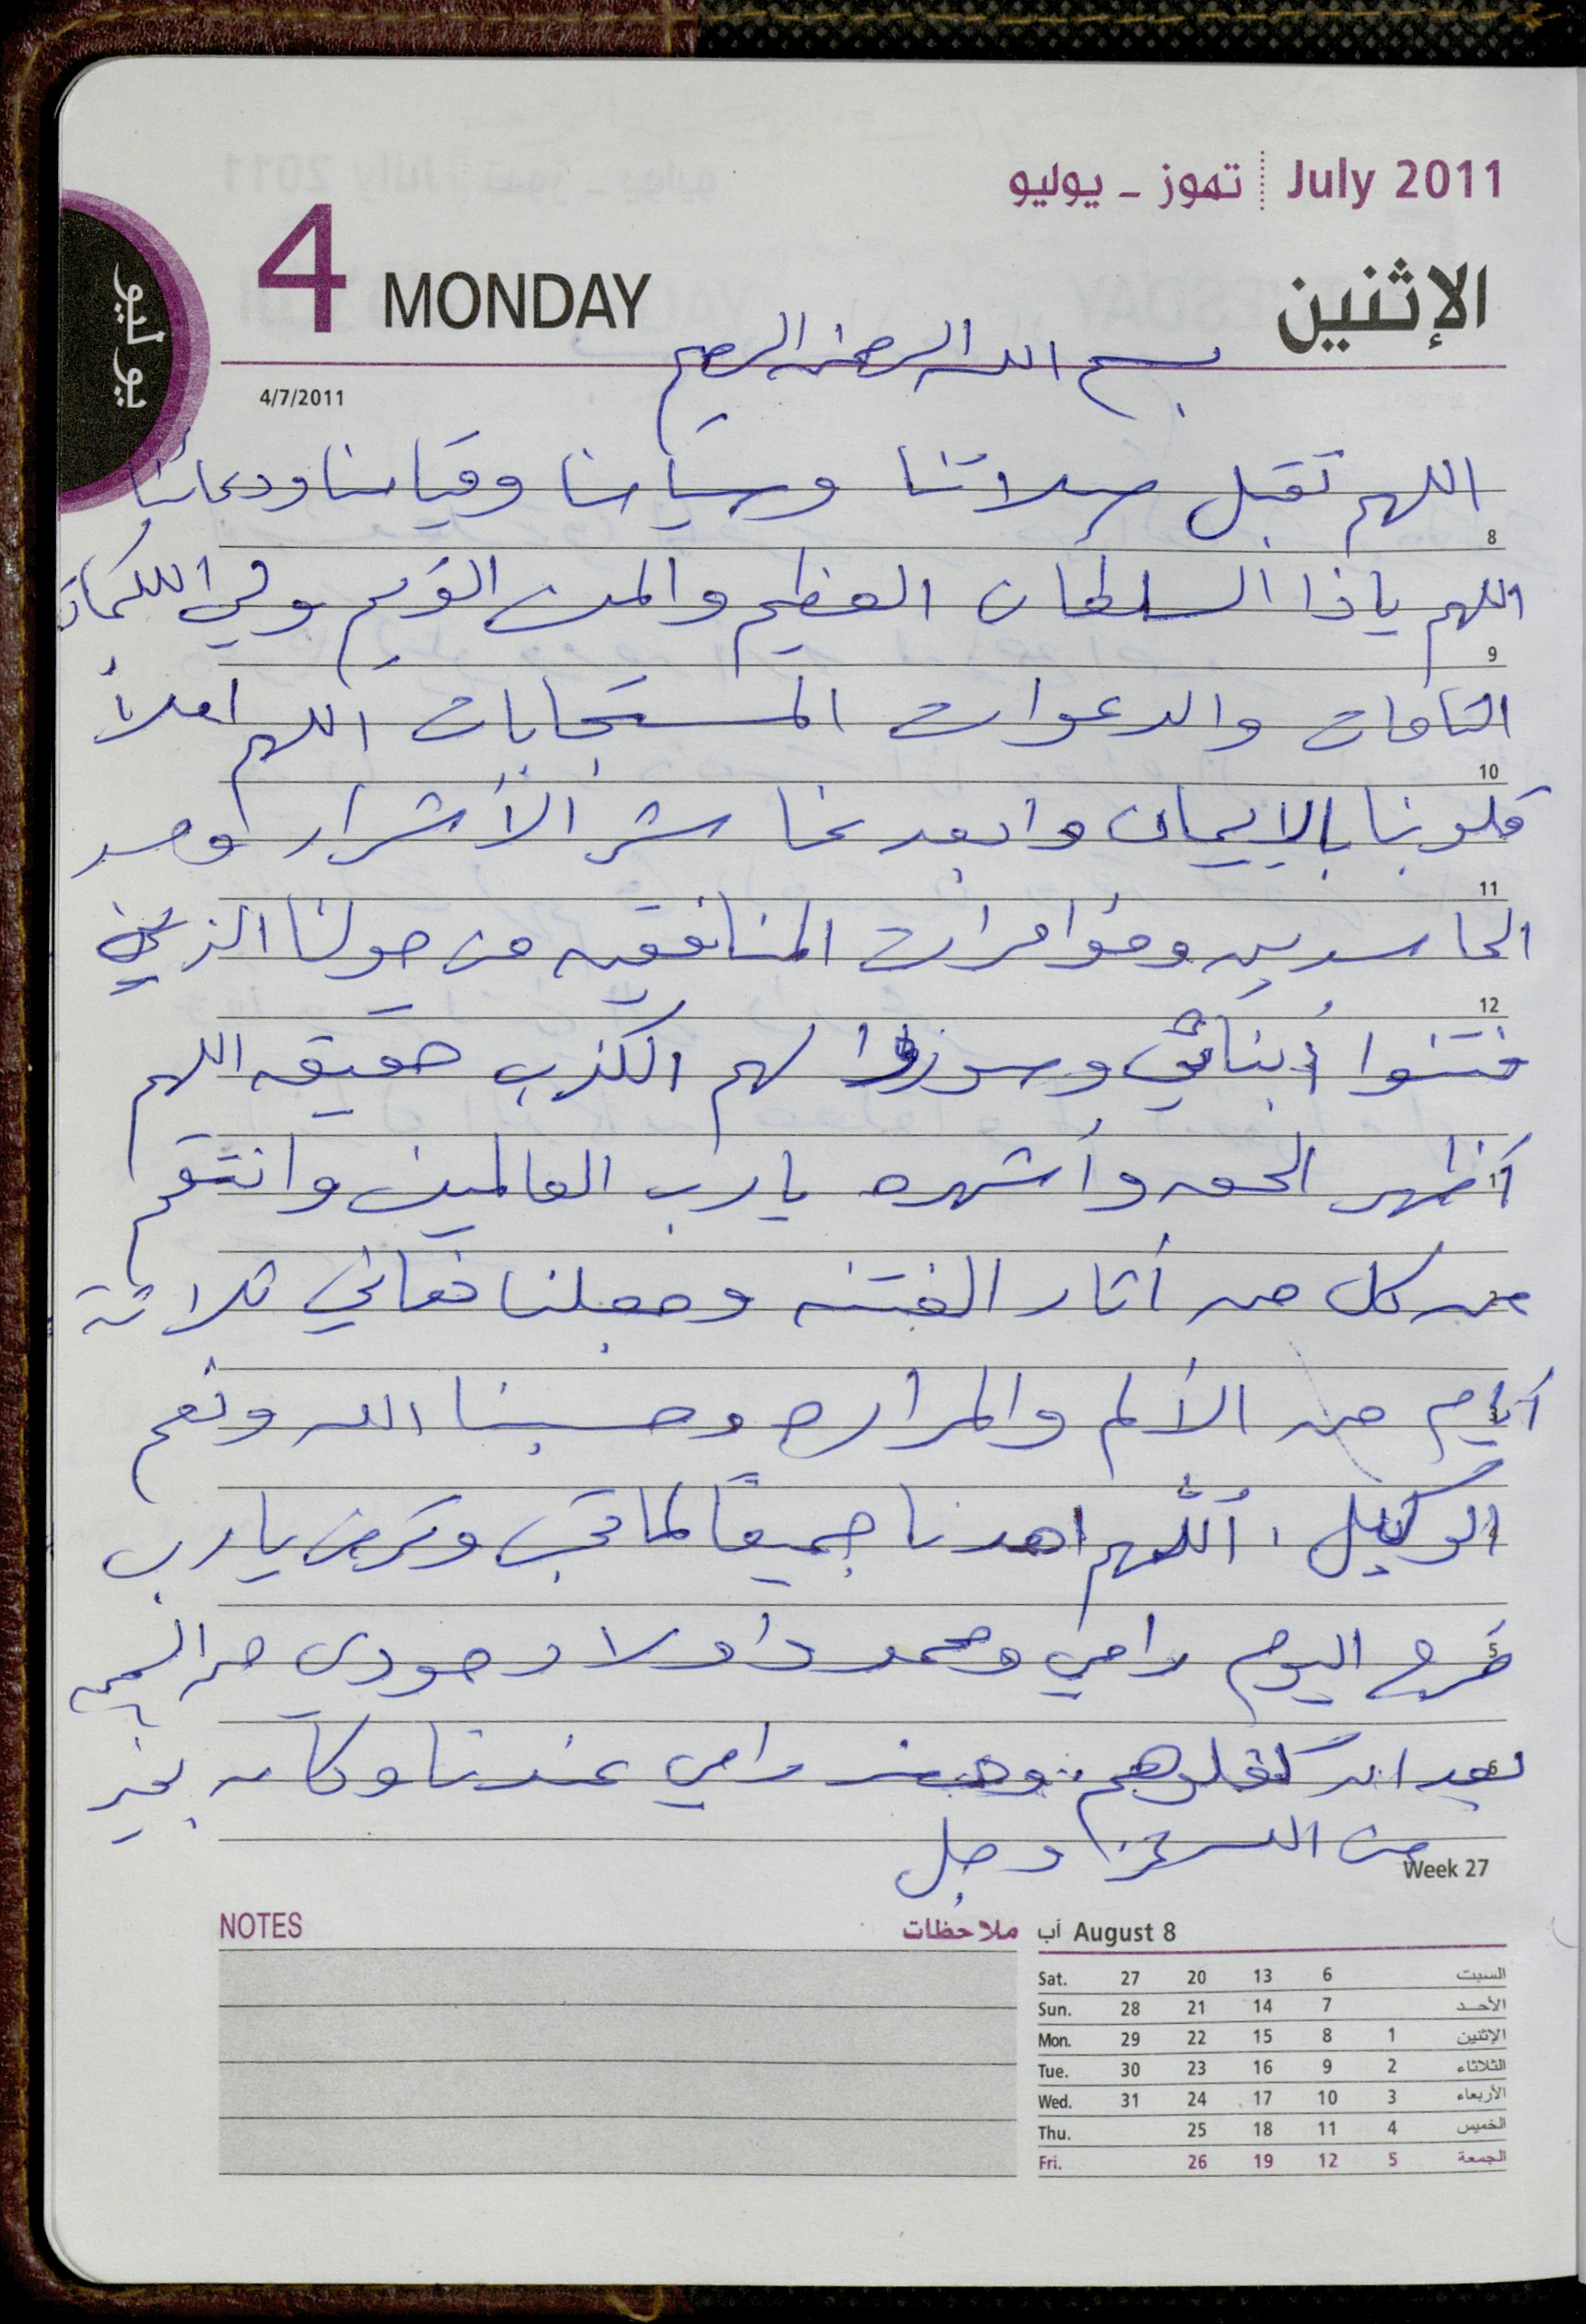 July 2011 تموز - يوليو
4 MONDAY الإثنين
يوليو
بسم الله الرحمن الرحيم
4/7/2011
اللهم تقبل صلاتنا وصيامنا وقيامنا ودعائنا
8
اللهم ياذا السلطان العظيم والمن القديم وفي الكلمات
9
التامات والدعوات المستجابات اللهم املأ
10
قلوبنا بالإيمان وابعد عنا شر الأشرار وحسد
11
الحاسدين ومؤامرات المنافقين من حولنا الذين
12
فتنوا أبنائي وصوروا لهم الكذب حقيقه اللهم
1
أظهر الحق وأشهره يارب العالمين وانتقم
من كل من أثار الفتنه وجعلنا نعاني ثلاثة
أيام من الألم والمراره وحسبنا الله ونعم
4
الوكيل، أللهم اهدنا جميعاً لما تحب وترضى يارب
5
خرج اليوم رامي ومحمد واولاد حودي من
6
بعد ان كفلوهم وحضر رامي عندنا وكان بخير
من الله عز وجل
Week 27
NOTES ملاحظات
August 8 آب
Sat. 27 20 13 6 السبت
Sun. 28 21 14 7 الأحد
Mon. 29 22 15 8 1 الإثنين
Tue. 30 23 16 9 2 الثلاثاء
Wed. 31 24 17 10 3 الأربعاء
Thu. 25 18 11 4 الخميس
Fri. 26 19 12 5 الجمعة